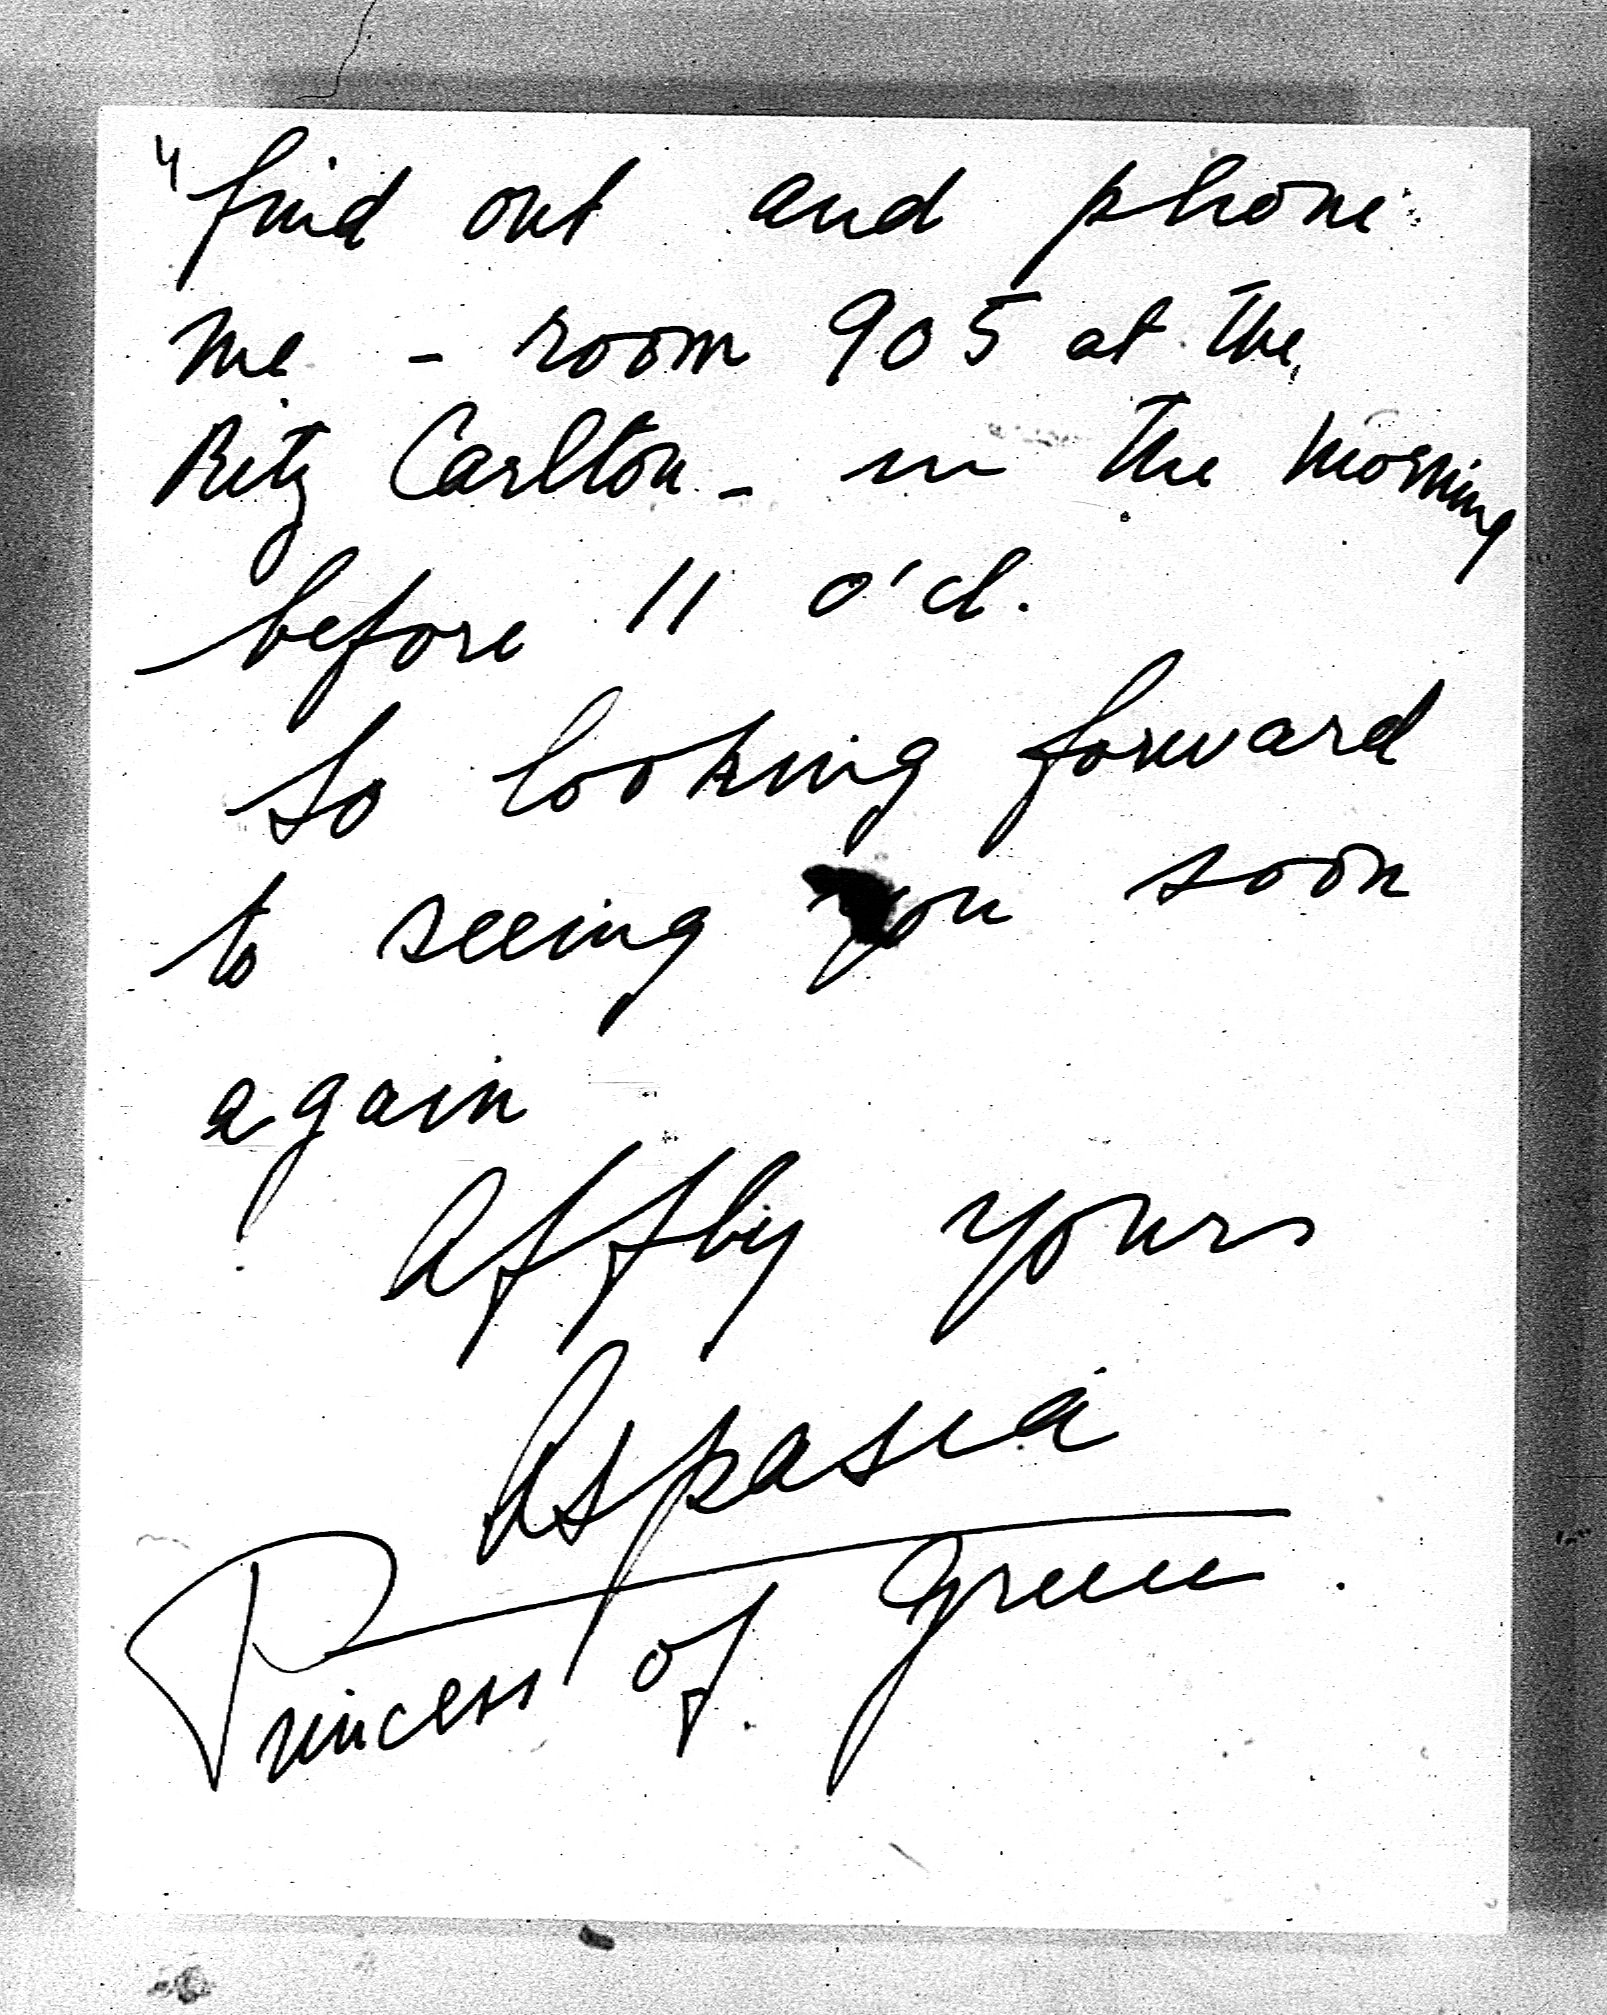 4 find out and phone
me - room 905 at the
Ritz Carlton - in the morning
before 11 o'cl.
So looking forward
to seeing you soon
again
Affly yours
Aspasia
Princess of Greece.